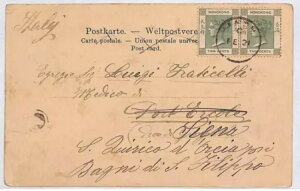 Italy
Postkarte. — Weltpostverein
Carte postale. — Union postale univer
Post card.
HONGKONG HONGKONG
TWO CENTS TWO CENTS
Egregio Sr Luigi Fraticelli
Medico di
Port Ercole
Siena
S. Quirico d'Orcia per
Bagni di S. Filippo